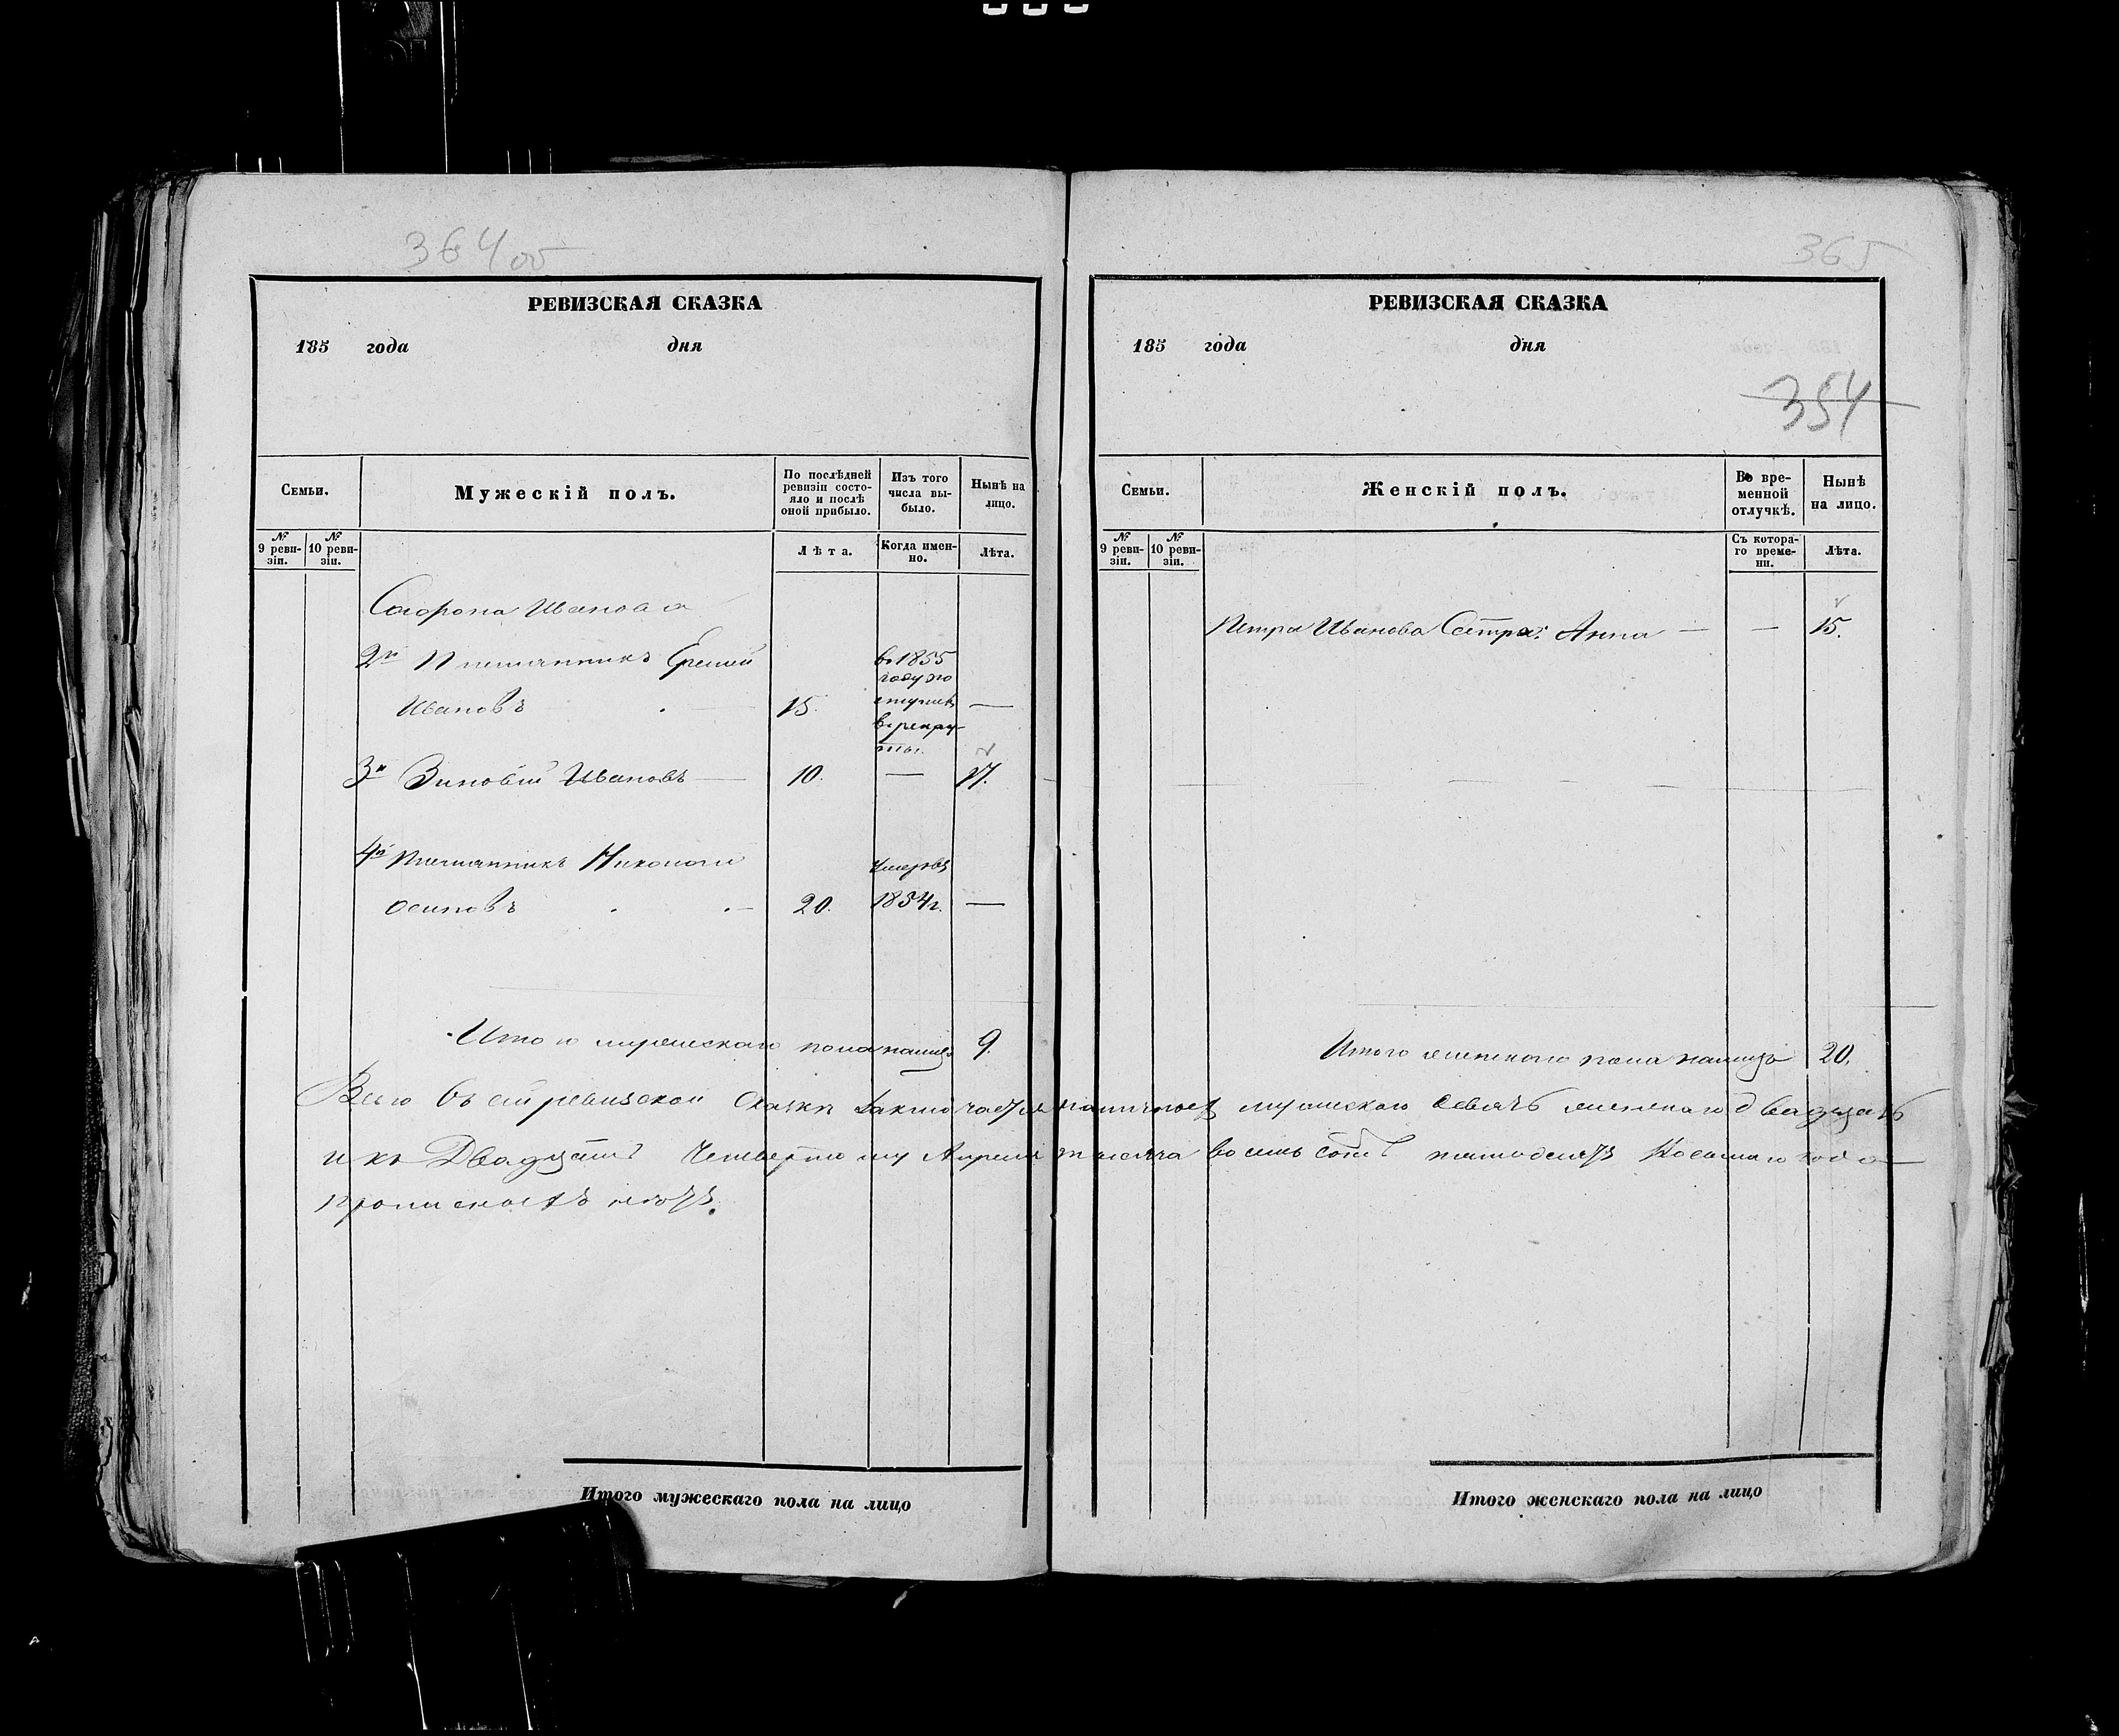 364 об
РЕВИЗСКАЯ СКАЗКА
185 года дня
Семьи.
Мужескій полъ.
По послѣдней ревизіи состояло и послѣ оной прибыло.
Изъ того числа выбыло.
Нынѣ на лицо.
№ 9 ревизіи.
№ 10 ревизіи.
Лѣта.
Когда именно.
Лѣта.
Сафрона Иванова
2й Племянникъ Еремей
Ивановъ 15. в 1855 году поступилъ в рекруты. —
3й Зиновій Ивановъ — 10. — 17.
4й Племянникъ Николай
Осиповъ 20. Умеръ въ 1854 г. —
Итого мужескаго пола налицо 9.
Итого мужескаго пола на лицо
365
РЕВИЗСКАЯ СКАЗКА
185 года дня
354
Семьи.
Женскій полъ.
Во временной отлучкѣ.
Нынѣ на лицо.
№ 9 ревизіи.
№ 10 ревизіи.
Съ котораго времени.
Лѣта.
Петра Иванова Сестра: Анна — — 15.
Итого женскаго пола налицо 20.
Всего въ сей ревизской сказки заключается наличность мужескаго девять женскаго двадцать
и къ Двадцать Четвертому Апреля тысяча восемь сотъ пятьдесятъ Восьмаго года
прописности нетъ.
Итого женскаго пола на лицо